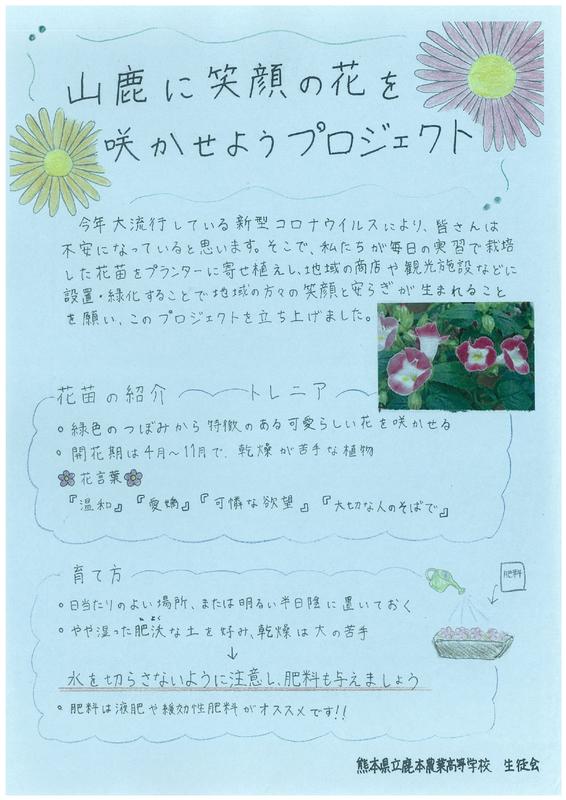 山鹿に笑顔の花を
咲かせようプロジェクト
今年大流行している新型コロナウイルスにより、皆さんは
不安になっていると思います。そこで、私たちが毎日の実習で栽培
した花苗をプランターに寄せ植えし、地域の商店や観光施設などに
設置・緑化することで地域の方々の笑顔と安らぎが生まれること
を願い、このプロジェクトを立ち上げました。
花苗の紹介 トレニア
○緑色のつぼみから特徴のある可愛らしい花を咲かせる
○開花期は4月〜11月で、乾燥が苦手な植物
花言葉
『温和』『愛嬌』『可憐な欲望』『大切な人のそばで』
育て方
肥料
○日当たりのよい場所、または明るい半日陰に置いておく
ひ よく
○やや湿った肥沃な土を好み、乾燥は大の苦手
↓
水を切らさないように注意し、肥料も与えましょう
○肥料は液肥や緩効性肥料がオススメです!!
熊本県立鹿本農業高等学校 生徒会